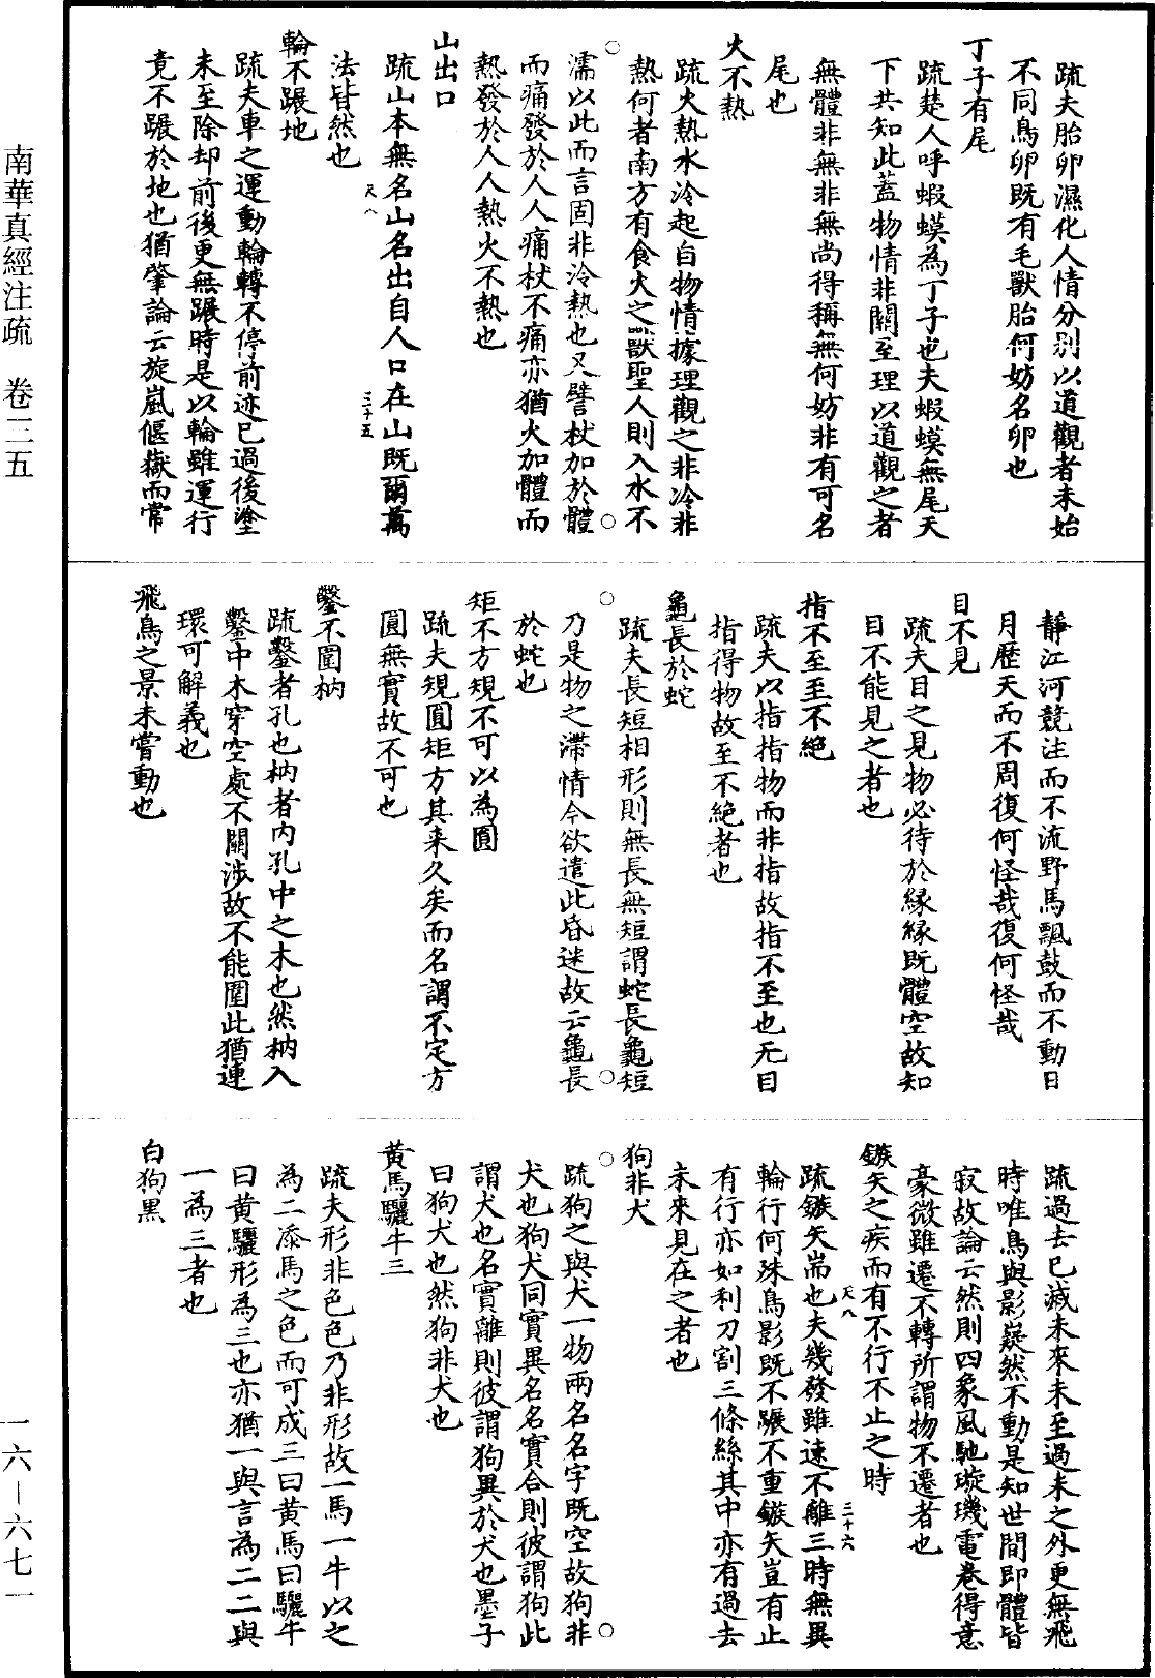 南華真經注疏　卷三五
疏夫胎卵濕化人情分別以道觀者未始
不同鳥卵既有毛獸胎何妨名卵也
丁子有尾
疏楚人呼蝦蟆為丁子也夫蝦蟆無尾天
下共知此蓋物情非關至理以道觀之者
無體非無非無尚得稱無何妨非有可名
尾也
火不熱
疏火熱水冷起自物情據理觀之非冷非
熱何者南方有食火之獸聖人則入水不
濡以此而言固非冷熱也又譬杖加於體
而痛發於人人痛杖不痛亦猶火加體而
熱發於人人熱火不熱也
山出口
疏山本無名山名出自人口在山既爾萬
法皆然也
尺八
三十五
輪不蹍地
疏夫車之運動輪轉不停前迹已過後塗
未至除却前後更無蹍時是以輪雖運行
竟不蹍於地也猶肇論云旋嵐偃嶽而常
靜江河競注而不流野馬飄鼓而不動日
月歷天而不周復何怪哉復何怪哉
目不見
疏夫目之見物必待於緣緣既體空故知
目不能見之者也
指不至至不絕
疏夫以指指物而非指故指不至也无目
指得物故至不絕者也
龜長於蛇
疏夫長短相形則無長無短謂蛇長龜短
乃是物之滯情今欲遣此昏迷故云龜長
於蛇也
矩不方規不可以為圓
疏夫規圓矩方其來久矣而名謂不定方
圓無實故不可也
鑿不圍枘
疏鑿者孔也枘者內孔中之木也然枘入
鑿中木穿空處不關涉故不能圍此猶連
環可解義也
飛鳥之景未嘗動也
疏過去已滅未來未至過未之外更無飛
時唯鳥與影嶷然不動是知世間即體皆
寂故論云然則四象風馳璇璣電卷得意
豪微雖遷不轉所謂物不遷者也
鏃矢之疾而有不行不止之時
疏鏃矢耑也夫幾發雖速不離三時無異
輪行何殊鳥影既不蹍不動鏃矢豈有止
有行亦如利刀割三條絲其中亦有過去
未來見在之者也
尺八
三十六
狗非犬
疏狗之與犬一物兩名名字既空故狗非
犬也狗犬同實異名名實合則彼謂狗此
謂犬也名實離則彼謂狗異於犬也墨子
曰狗犬也然狗非犬也
黃馬驪牛三
疏夫形非色色乃非形故一馬一牛以之
為二添馬之色而可成三曰黃馬曰驪牛
曰黃驪形為三也亦猶一與言為二二與
一為三者也
白狗黑
一六—六七一